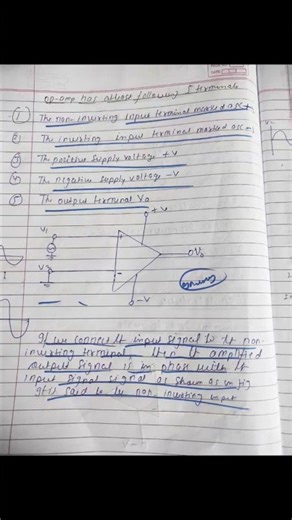 OP-amp has atleast following 5 terminals
① The non-inverting input terminal marked as +
② The inverting input terminal marked as -
③ The positive supply voltage +V
④ The negative supply voltage -V
⑤ The output terminal Vo
+V
V1
+
Vo
V2
-
-V
If we connect it input signal to it non-
inverting terminal, then it amplified
output signal is in phase with it
input signal signal as shown as in
It is said to be non inverting input